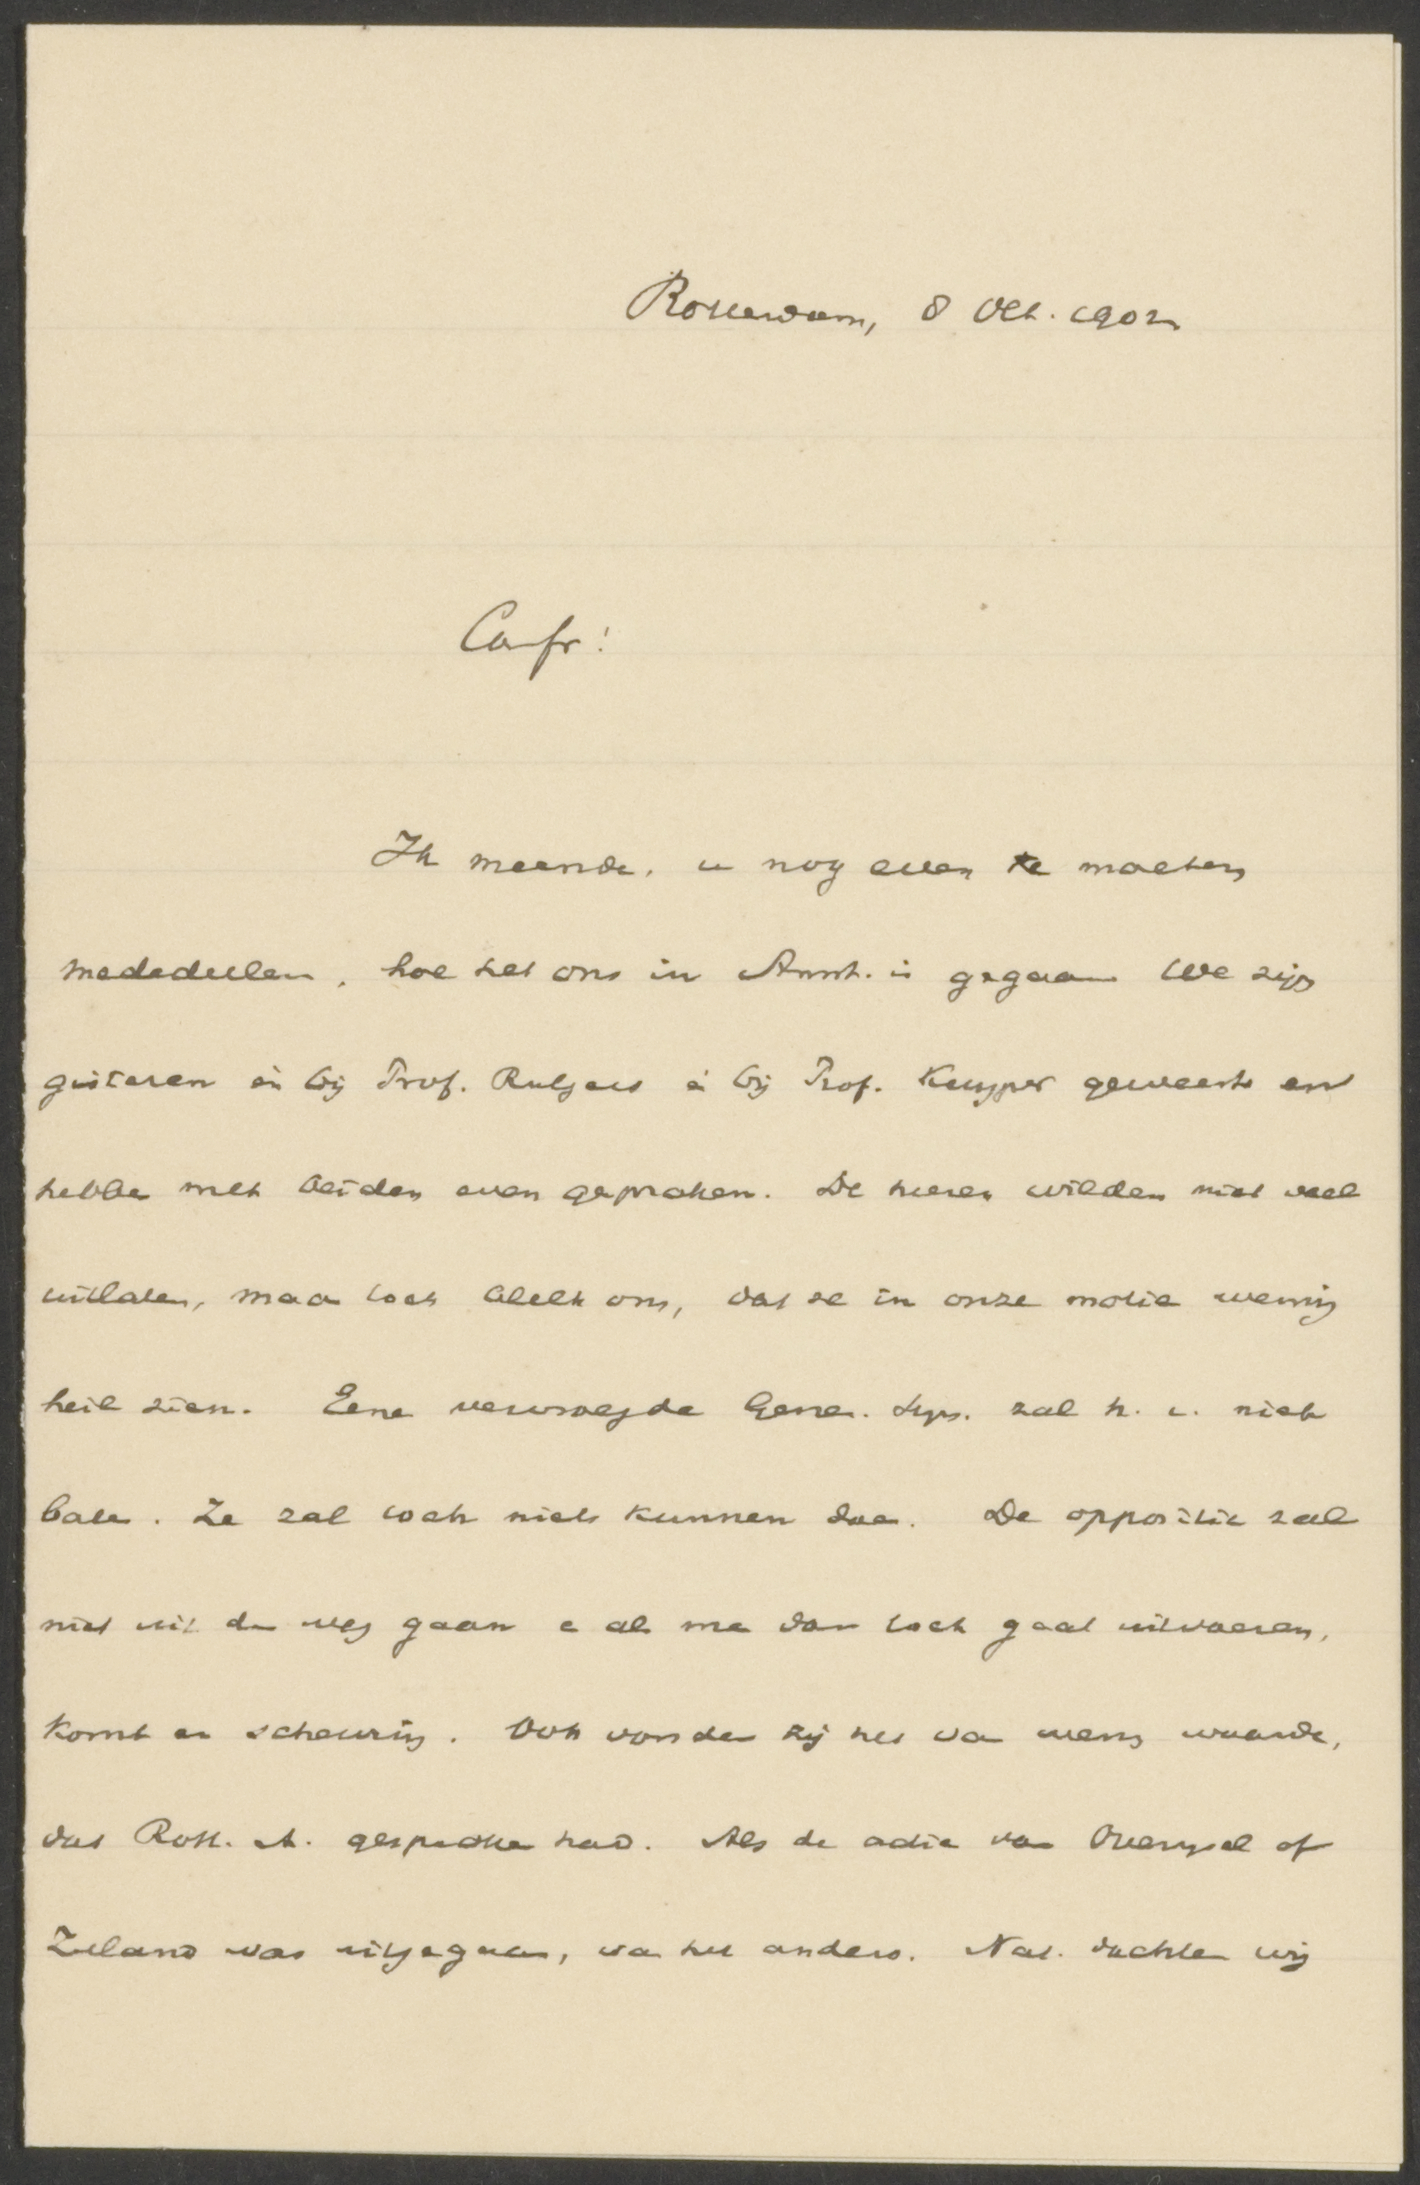 Rotterdam, 8 Oct. 1902
Confr!
Ik meende, u nog even te moeten
mededeelen, hoe het ons in Amst. is gegaan. We zijn
gisteren èn bij Prof. Rutgers èn bij Prof. Kuyper geweest en
hebben met beiden even gesproken. De heeren wilden niet veel
uitlaten, maar toch bleek ons, dat ze in onze motie weinig
heil zien. Eene vervroegde Gener. Syn. zal h. i. niet
baten. Ze zal toch niets kunnen doen. De oppositie zal
niet uit den weg gaan en als men dan toch gaat uitvoeren,
komt er scheuring. Ook vonden zij het van weinig waarde,
dat Rott. A. gesproken had. Als de actie van Overijsel of
Zeeland was uitgegaan, was het anders. Nat. dachten wij